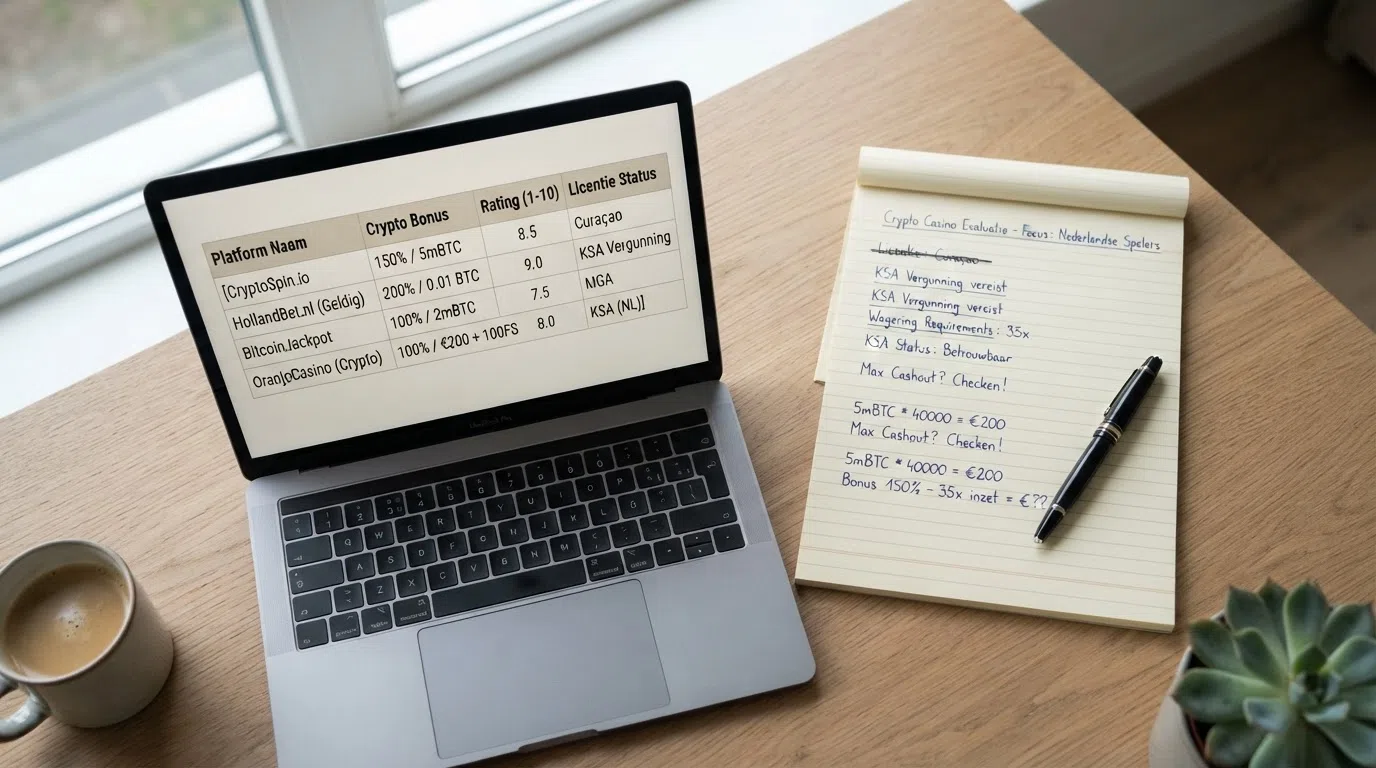 Platform Naam Crypto Bonus Rating (1-10) Licentie Status
[CryptoSpin.io 150% / 5mBTC 8.5 Curaçao
HollandBet.nl (Geldig) 200% / 0.01 BTC 9.0 KSA Vergunning
BitcoinJackpot 100% / 2mBTC 7.5 MGA
OranjeCasino (Crypto) 100% / €200 + 100FS 8.0 KSA (NL)]
Crypto Casino Evaluatie - Focus: Nederlandse Spelers
Curaçao
KSA Vergunning vereist
KSA Vergunning vereist
Wagering Requirements: 35x
KSA Status: Betrouwbaar
Max Cashout? Checken!
5mBTC * 40000 = €200
Max Cashout? Checken!
5mBTC * 40000 = €200
Bonus 150% - 35x inzet = €??